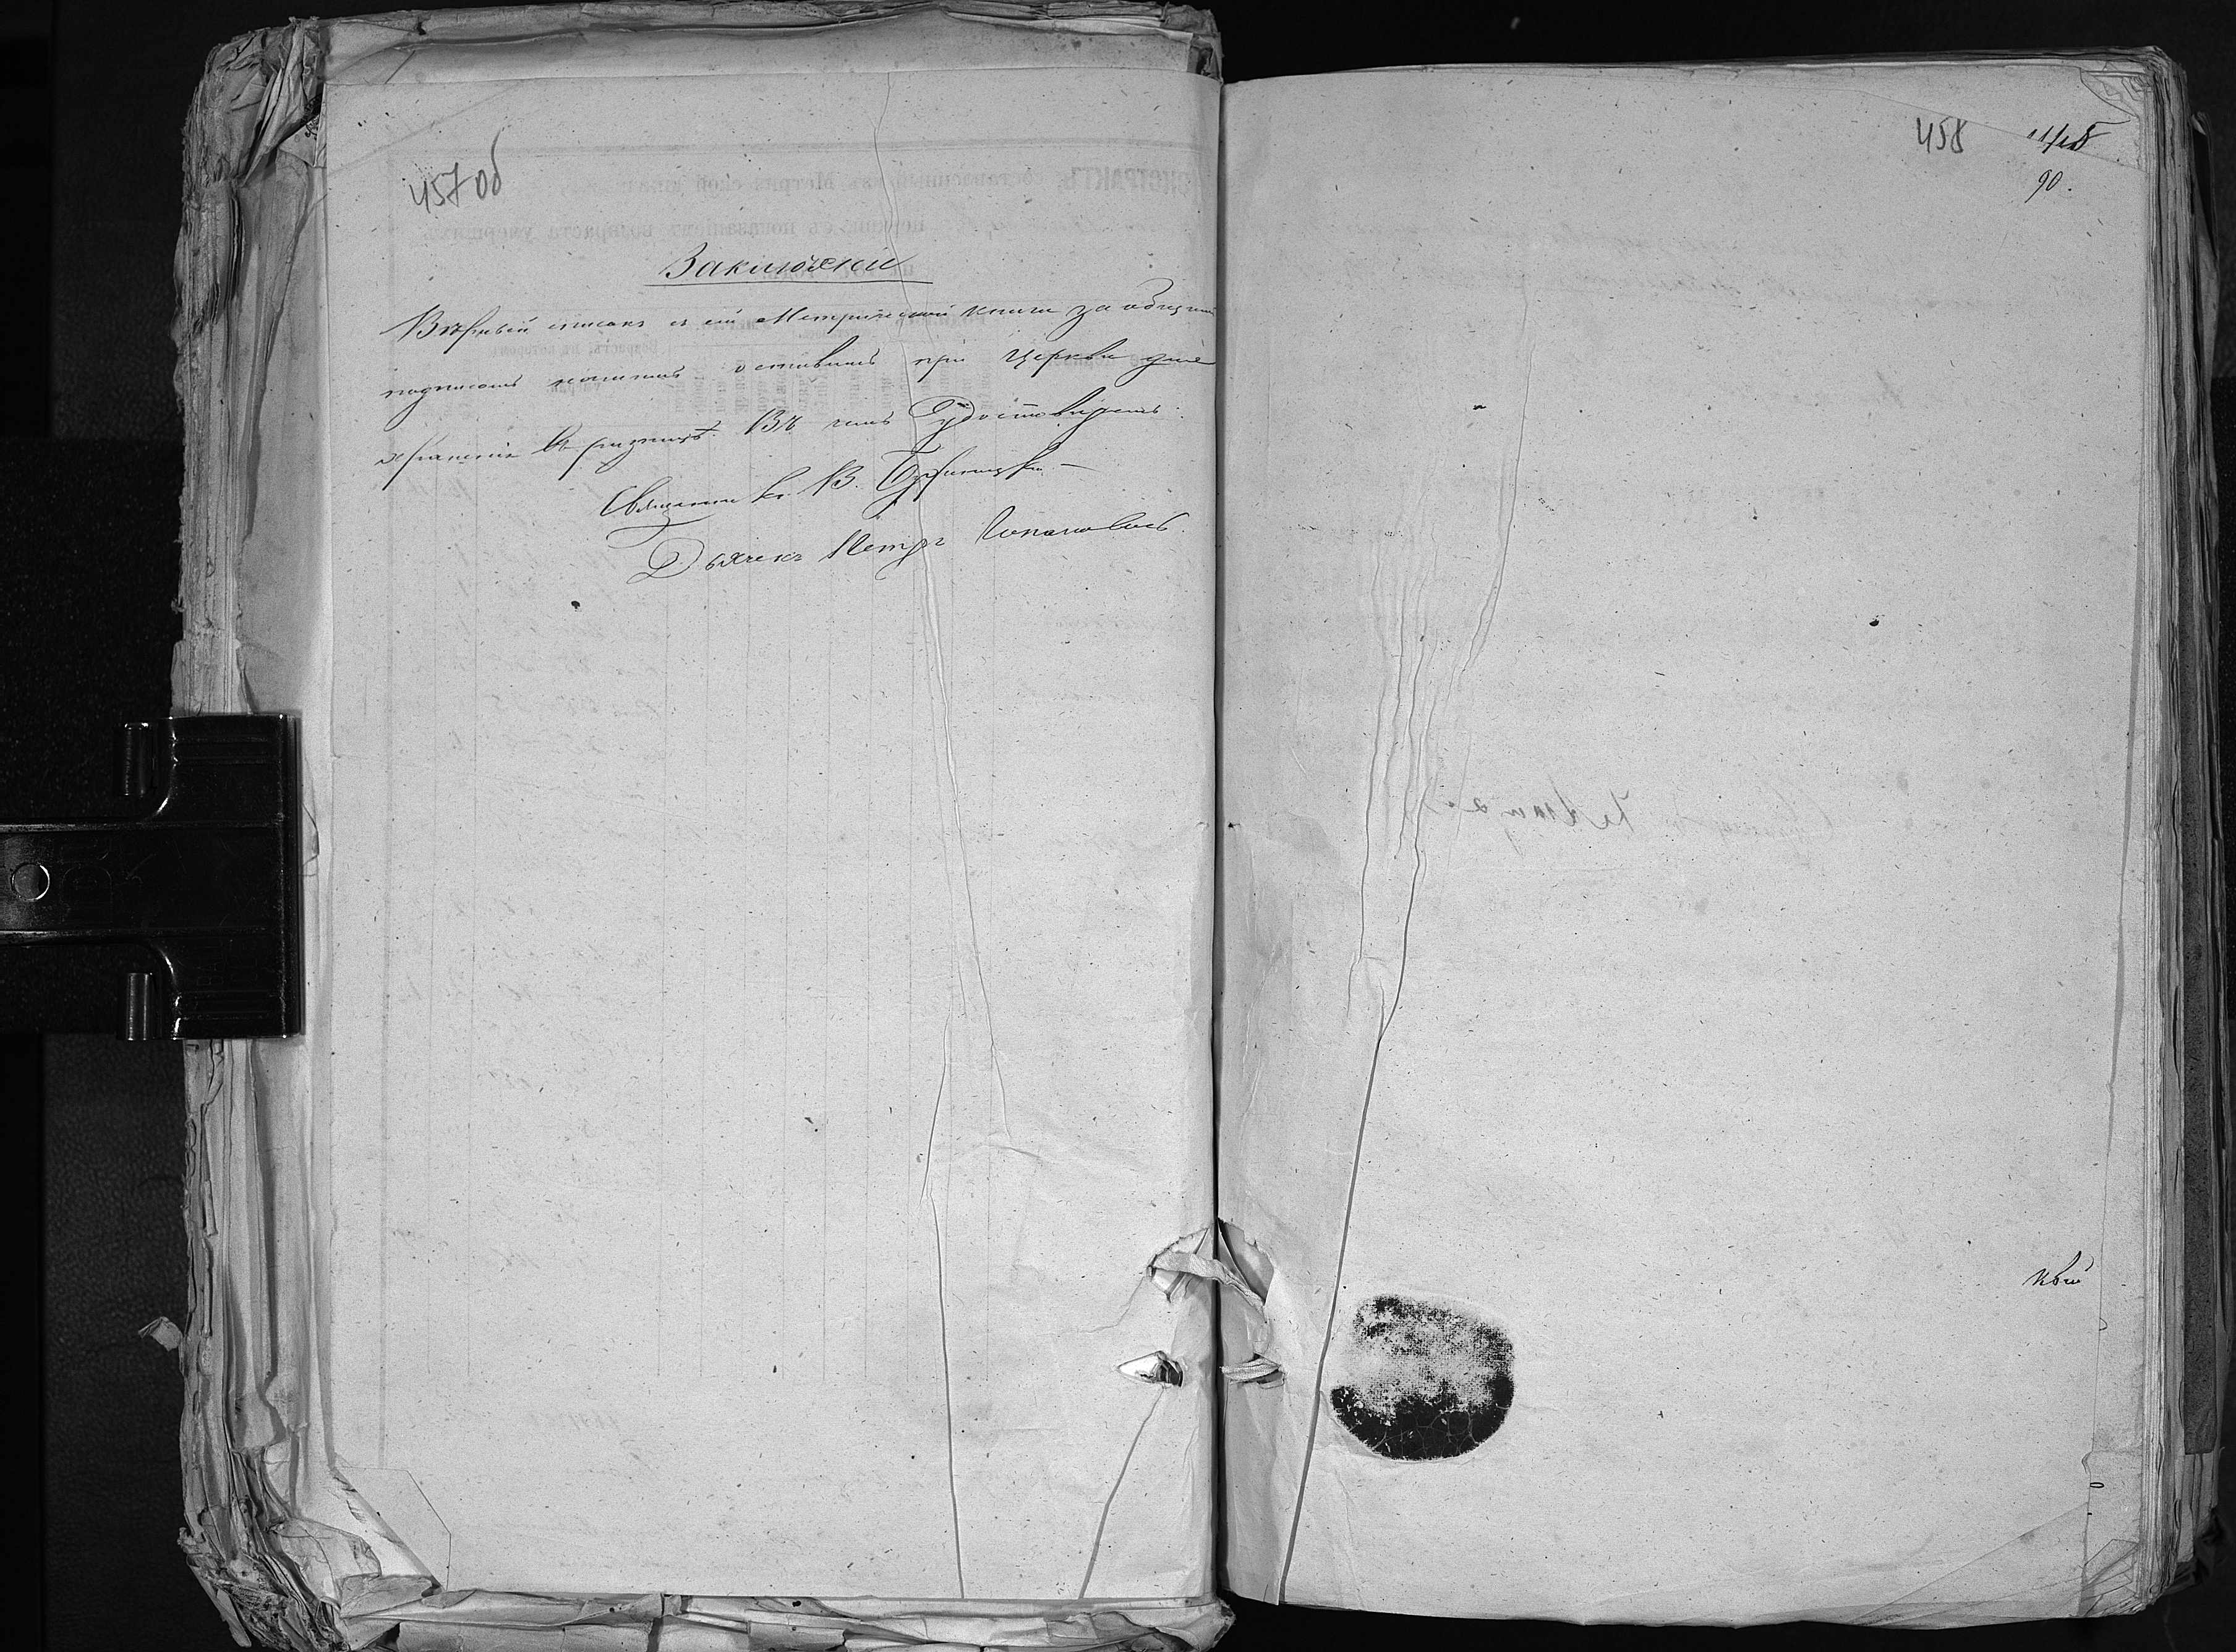 457 об
Заключеніе
Вѣрный списокъ съ сей Метрической книги за общимъ
подписомъ нашимъ оставленъ при Церкви для
храненія въ ризницѣ. Въ чемъ Удостовѣряемъ:
Священникъ В.
Дьячекъ Петръ
458
90.